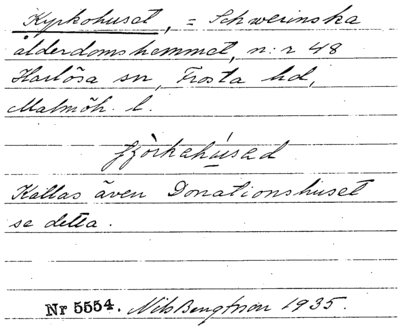 Kyrkohuset, = Schwerinska
ålderdomshemmet, n:r 48
Harlösa sn, Frosta hd,
Malmöh. l.
Kallas även Donationshuset
se detta.
Nr 5554. Nils Bengtsson 1935.